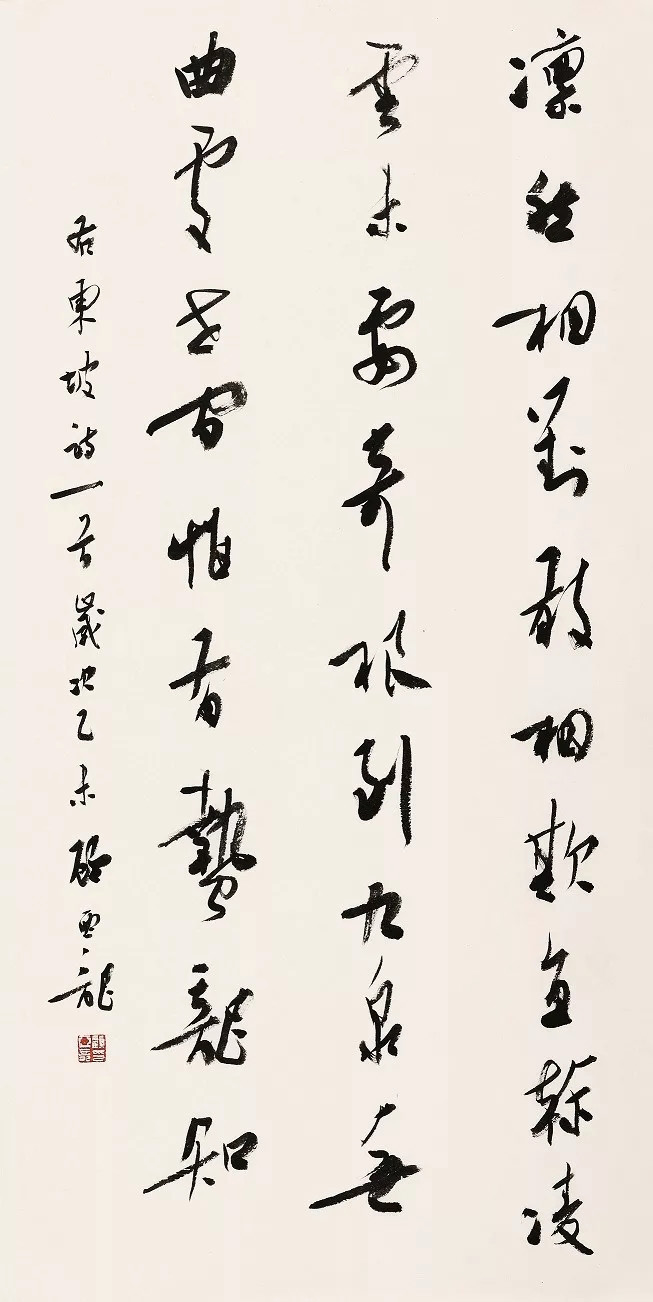 凜然相對敢相欺直幹凌
雲未要奇根到九泉無
曲處世間惟有蟄龍知
右東坡詩一首歲次乙未顧亞龍